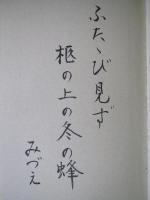 ふたゝび見ず
柩の上の冬の蜂
みづえ